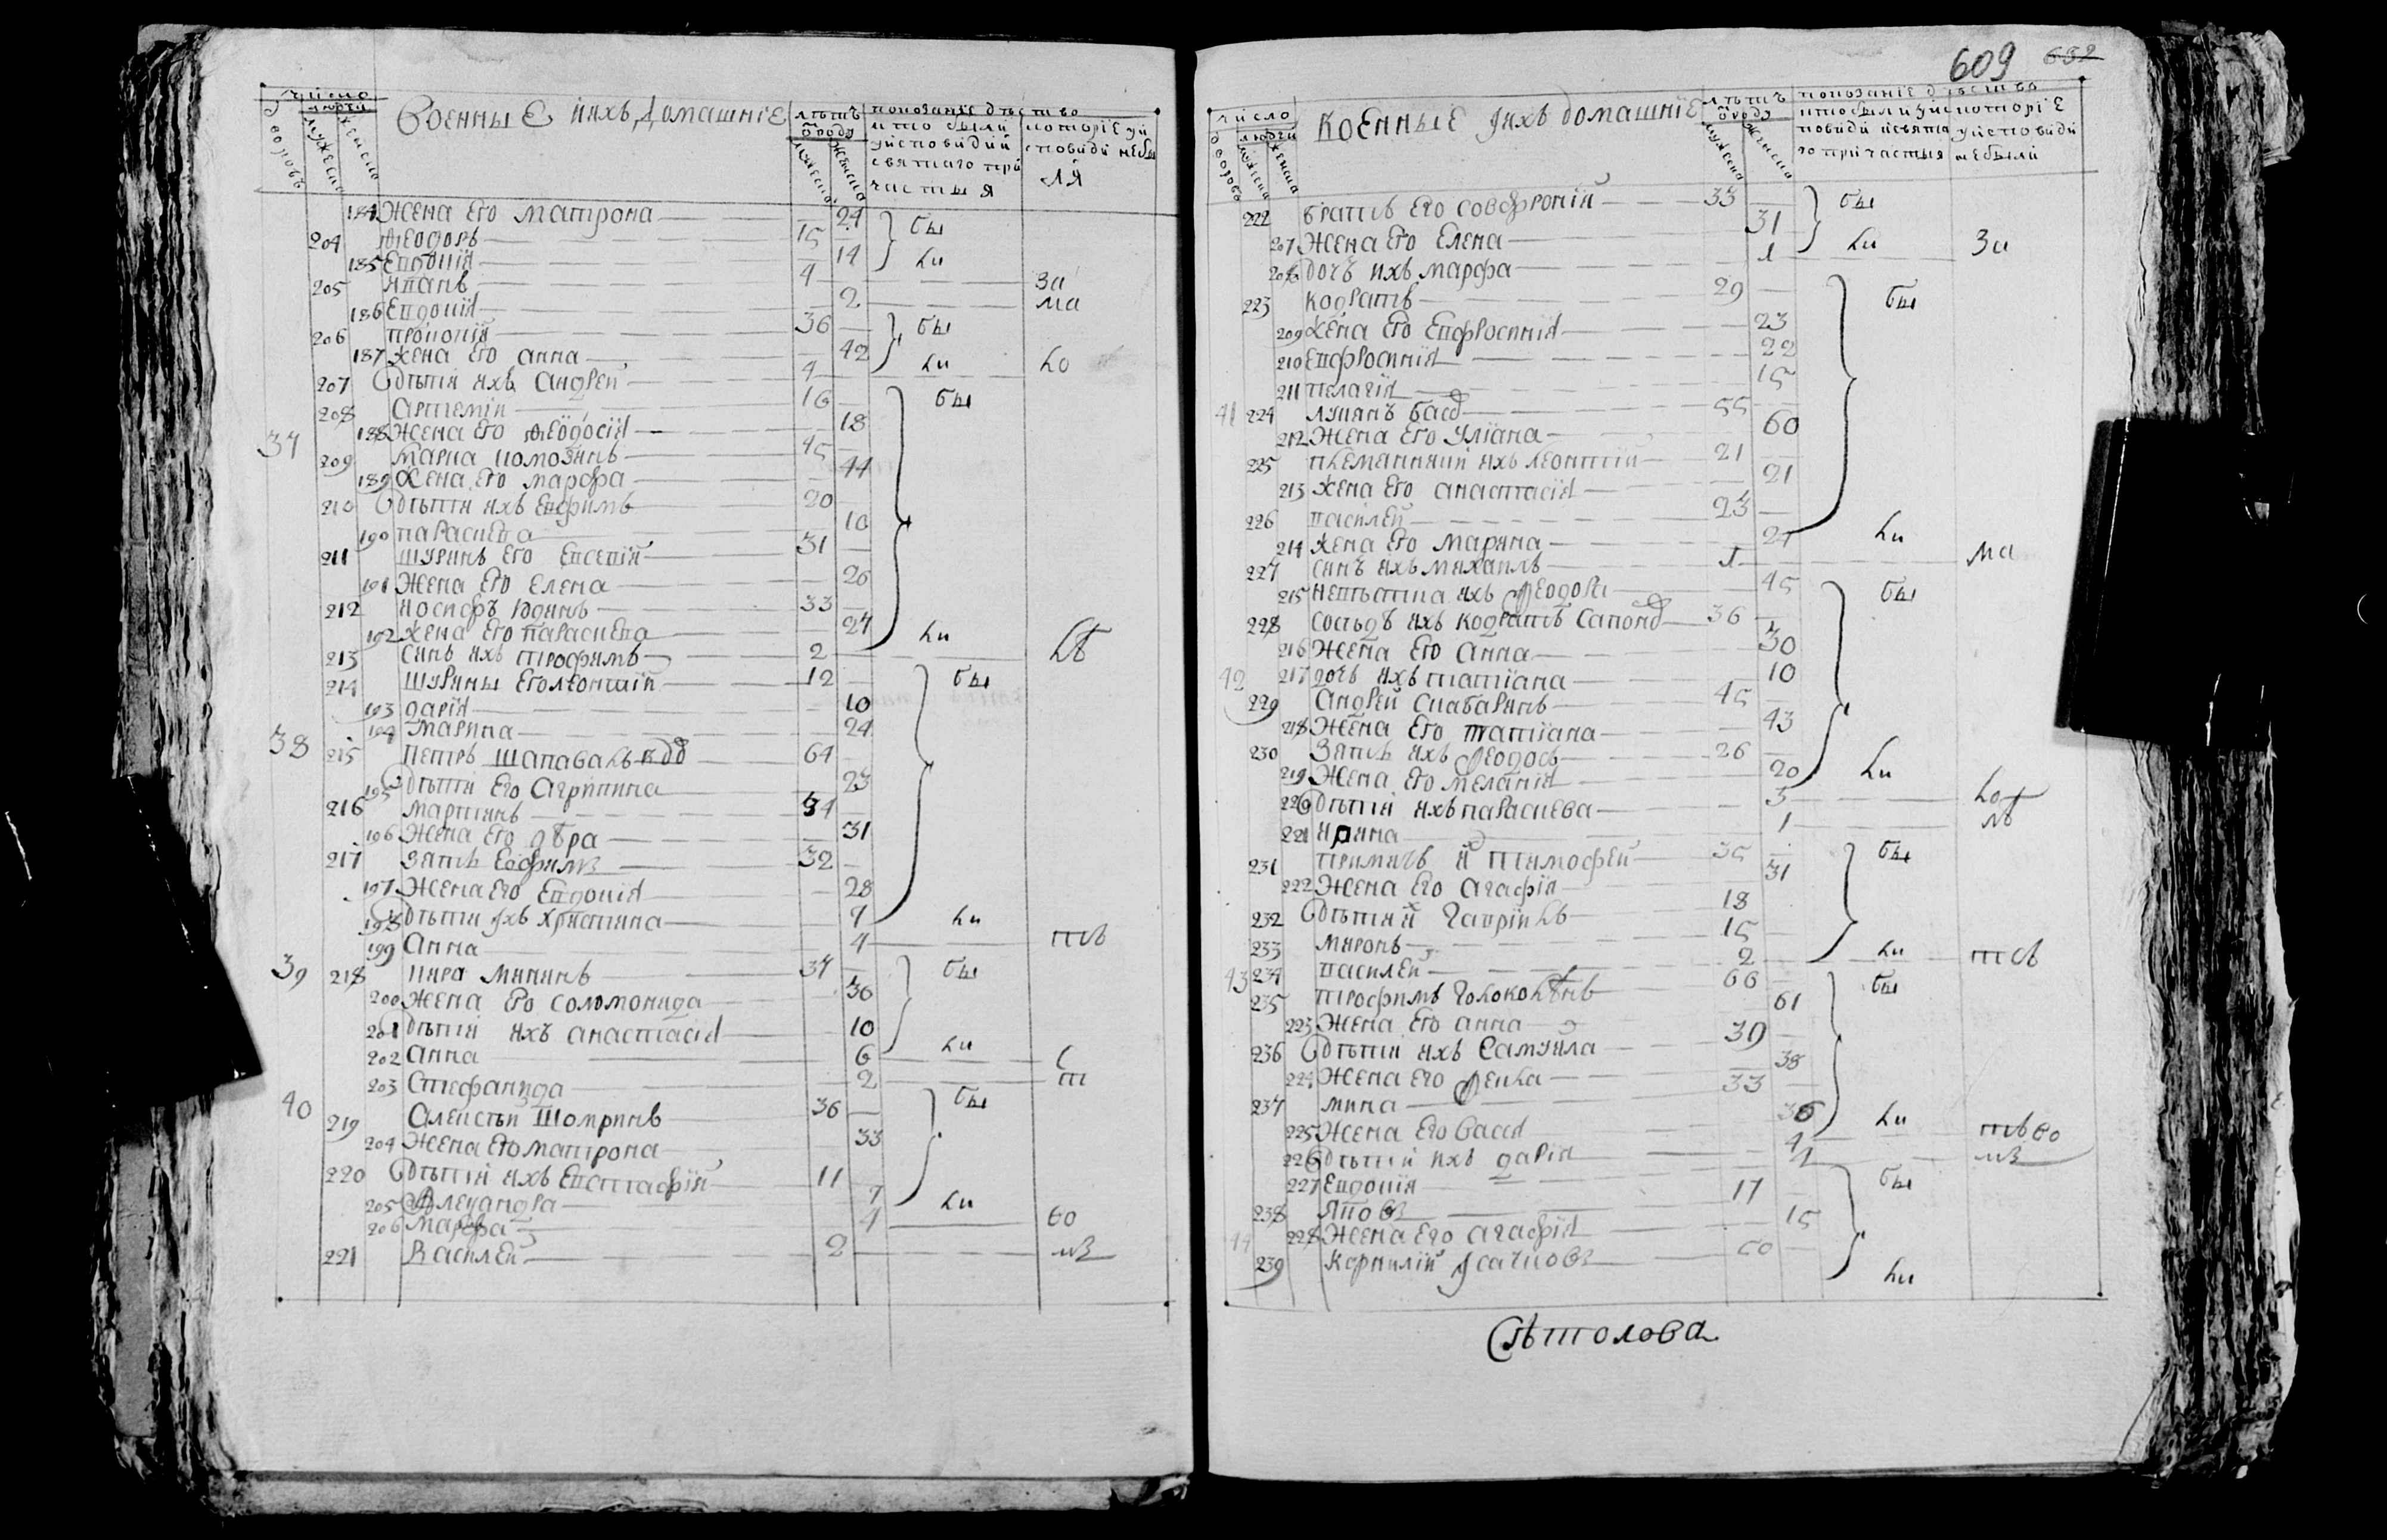 число
людей
дворовъ
мужеска
женска
Военные ихъ Домашніе
лѣтъ
ѿ роду
мужеска
женска
показаніе дѣйство
кто были
у исповиди и
святаго при
частыя
которіе у и
сповиди небы
ля
184 Жена его Матрона 24 бы
204 Ѳеодоръ 15
185 Евдокія 14 ли
205 Иванъ 4 за
186 Евдокія 2 ма
206 Прокопій 36 бы
187 Жена его Анна 42 ли
207 Дѣти ихъ Андрей 4 ло
208 Артемій 16 бы
188 Жена его Ѳеодосія 18
37 209 Марка Комозинъ 45
189 Жена его Марфа 44
210 Дѣти ихъ Евфимъ 20
190 Параскева 10
211 Шуринъ его Евсевій 31
191 Жена его Елена 26
212 Іосифъ Юдинъ 33
192 Жена его Параскева 27 ли
213 Синъ ихъ Трофимъ 2 лѣ
214 Шурины его Леонтий 12 бы
193 Дарія 10
194 Марина 24
38 215 Петръ Шаповалъ вдд 64
195 Дѣти его Агрипина 23
216 Мартинъ 34
196 Жена его Дѣра 31
217 Зять Евфимъ 32
197 Жена его Евдокія 28
198 Дѣти ихъ Христина 7 ли
199 Анна 4 тъ
39 218 Кира Микинъ 37 бы
200 Жена его Соломонида 36
201 Дѣтій ихъ Анастасія 10 ли
202 Анна 6 с
203 Стефанида 2 т
40 219 Алексѣй Шокринъ 36 бы
204 Жена его Матрона 33
220 Дѣтій ихъ Евстафій 11
205 Александра 7 ли
206 Марфа 4 во
221 Василей 2 мъ
609 632
число
людей
дворовъ
мужеска
женска
Военные ихъ домашніе
лѣтъ
ѿ роду
мужеска
женска
показаніе дѣйство
кто были у и
повиди и свята
го причастыя
которіе
у исповиди
небыли
222 братъ его Совфроній 33 бы
207 Жена его Елена 31 ли
208 дочъ ихъ Марфа 1 за
223 Кодратъ 29 бы
209 Жена его Евфросинія 23
210 Евфросинія 22
211 Пелагія 15
41 224 Лукянъ Басд 55
212 Жена его Уліана 60
225 Племянникъ ихъ Леонтій 21
213 Жена его Анастасія 21
226 Василей 23
214 Жена его Марина 27 ли
227 Синъ ихъ Михаилъ 1 ма
215 Невѣстка ихъ Ѳеодора 45 бы
228 Сосѣдъ ихъ Кодратъ 36
216 Жена его Анна 30
42 217 дочъ ихъ Татіана 10
229 Андрей Скабаринъ 45
218 Жена его Татіана 43
230 Зять ихъ Ѳеодосъ 26
219 Жена его Меланія 20 ли
220 Дѣтій ихъ Параскева 3 ло
221 Ирина 1
231 Примачъ и Тимофей 35 бы
222 Жена его Агафія 31
232 Дѣти и Гаврилъ 18
233 Миронъ 15 ли
43 234 Василей 2
235 Трофимъ Голоколѣнъ 66 бы
223 Жена его Анна 61
236 Дѣтій ихъ Самуила 39
224 Жена его Ѳекла 38
237 Мина 33
225 Жена его Васса 36 ли
226 Дѣтій ихъ Дарія 4
227 Евдокія 1 бы
238 Яковъ 17
228 Жена его Агафія 15
44 239 Корнилій Усачковъ 60
ли
Святолова